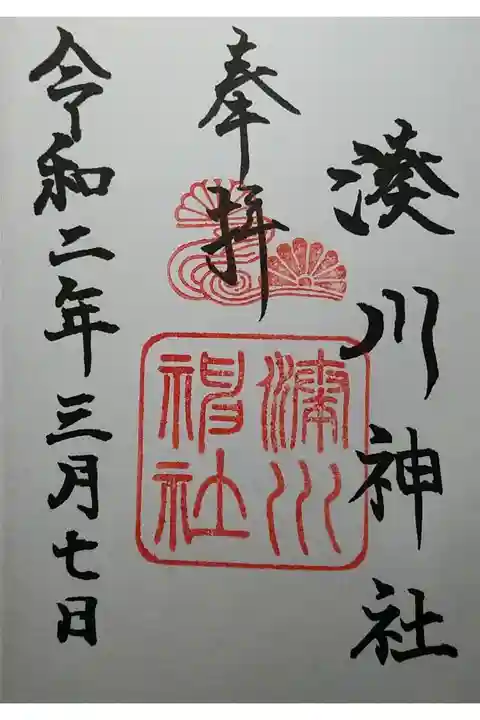 湊川神社
奉拝
湊川
神社
令和二年三月七日